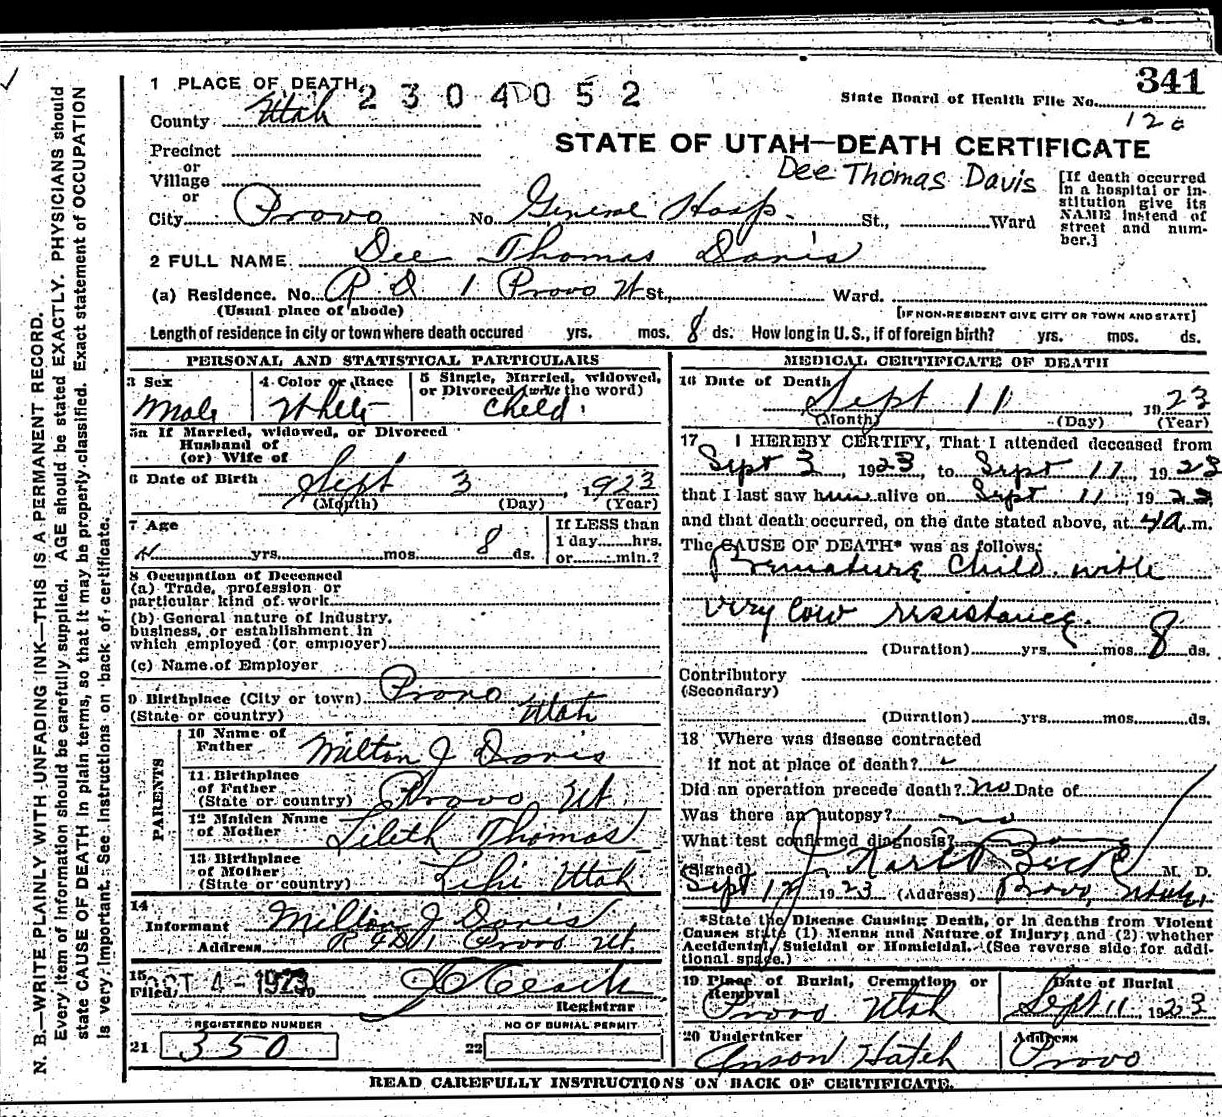 341
1 PLACE OF DEATH
2 3 0 4 0 0 5 2
State Board of Health File No.
County Utah
120
Precinct
STATE OF UTAH—DEATH CERTIFICATE
or
Village
Dee Thomas Davis
or
City Provo No. General Hosp. St., Ward
[If death occurred
in a hospital or in-
stitution give its
NAME instead of
street and num-
ber.]
2 FULL NAME Dee Thomas Davis
(a) Residence. No. R D 1 Provo Ut St., Ward.
(Usual place of abode)
[IF NON-RESIDENT GIVE CITY OR TOWN AND STATE]
Length of residence in city or town where death occured yrs. mos. 8 ds. How long in U.S., if of foreign birth? yrs. mos. ds.
PERSONAL AND STATISTICAL PARTICULARS
3 Sex
Male
4 Color or Race
White
5 Single, Married, widowed,
or Divorced (write the word)
Child
5a If Married, widowed, or Divorced
Husband of
(or) Wife of
6 Date of Birth Sept 3, 1923
(Month) (Day) (Year)
7 Age
yrs. mos. 8 ds.
If LESS than
1 day hrs.
or min.?
8 Occupation of Deceased
(a) Trade, profession or
particular kind of work
(b) General nature of industry,
business, or establishment in
which employed (or employer)
(c) Name of Employer
9 Birthplace (City or town) Provo
(State or country) Utah
PARENTS
10 Name of
Father Milton J Davis
11 Birthplace
of Father
(State or country) Provo Ut.
12 Maiden Name
of Mother Lileth Thomas
13 Birthplace
of Mother
(State or country) Lehi Utah
14
Informant Milton J Davis
Address R F D 1 Provo Ut.
15 OCT 4 - 1923
Filed,
Registrar
REGISTERED NUMBER
21 350
NO OF BURIAL PERMIT
22
MEDICAL CERTIFICATE OF DEATH
16 Date of Death
Sept 11, 1923
(Month) (Day) (Year)
17 I HEREBY CERTIFY, That I attended deceased from
Sept 3, 1923, to Sept 11, 1923
that I last saw him alive on Sept 11, 1923,
and that death occurred, on the date stated above, at 4 a m.
The CAUSE OF DEATH* was as follows:
Premature Child with
very low resistance.
(Duration) yrs. mos. 8 ds.
Contributory
(Secondary)
(Duration) yrs. mos. ds.
18 Where was disease contracted
if not at place of death?
Did an operation precede death? no Date of
Was there an autopsy? no
What test confirmed diagnosis?
(Signed) J Karl Beck M. D.
Sept 12 1923 (Address) Provo, Utah.
*State the Disease Causing Death, or in deaths from Violent
Causes state (1) Menns and Nature of Injury; and (2) whether
Accidental, Suicidal or Homicidal. (See reverse side for addi-
tional space.)
19 Place of Burial, Cremption or
Removal
Provo Utah
Date of Burial
Sept 11, 1923
20 Undertaker
Anson Hatch
Address
Provo
READ CAREFULLY INSTRUCTIONS ON BACK OF CERTIFICATE.
N. B.—WRITE PLAINLY WITH UNFADING INK—THIS IS A PERMANENT RECORD.
Every item of information should be carefully supplied. AGE should be stated EXACTLY. PHYSICIANS should
state CAUSE OF DEATH in plain terms, so that it may be properly classified. Exact statement of OCCUPATION
is very important. See instructions on back of certificate.